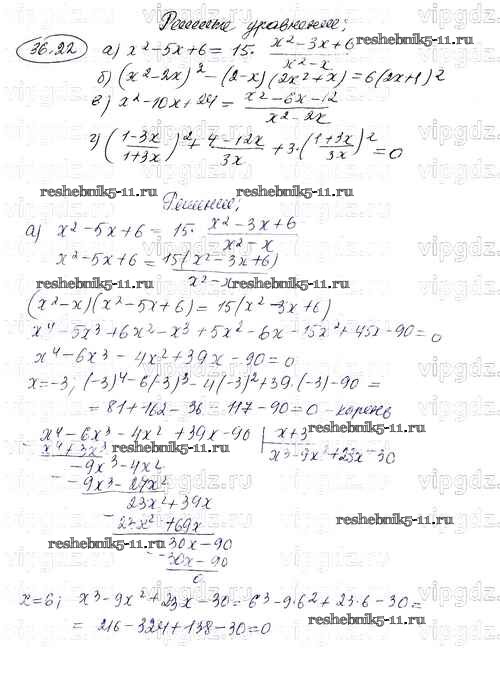 Решение уравнений;
36.22 а) x² - 5x + 6 = 15 · (x² - 3x + 6)/(x² - x) reshebnik5-11.ru
б) (x² - 2x)² - (2-x)(2x² + x) = 6(2x+1)²
в) x² - 10x + 24 = (x² - 6x - 12)/(x² - 2x)
г) ((1-3x)/(1+3x))² + (4-12x)/(3x) + 3·((1+3x)/(3x))² = 0
reshebnik5-11.ru reshebnik5-11.ru
Решение;
а) x² - 5x + 6 = 15 · (x² - 3x + 6)/(x² - x)
x² - 5x + 6 = 15(x² - 3x + 6)/(x² - x)
reshebnik5-11.ru reshebnik5-11.ru
(x² - x)(x² - 5x + 6) = 15(x² - 3x + 6)
x⁴ - 5x³ + 6x² - x³ + 5x² - 6x - 15x² + 45x - 90 = 0
x⁴ - 6x³ - 4x² + 39x - 90 = 0
x = -3; (-3)⁴ - 6(-3)³ - 4(-3)² + 39·(-3) - 90 =
= 81 + 162 - 36 - 117 - 90 = 0 - корень
x⁴ - 6x³ - 4x² + 39x - 90 | x + 3
x⁴ + 3x³ reshebnik5-11.ru x³ - 9x² + 23x - 30
-9x³ - 4x²
-9x³ - 27x²
23x² + 39x
23x² + 69x reshebnik5-11.ru
-30x - 90
reshebnik5-11.ru -30x - 90
0
x = 6; x³ - 9x² + 23x - 30 = 6³ - 9·6² + 23·6 - 30 =
= 216 - 324 + 138 - 30 = 0